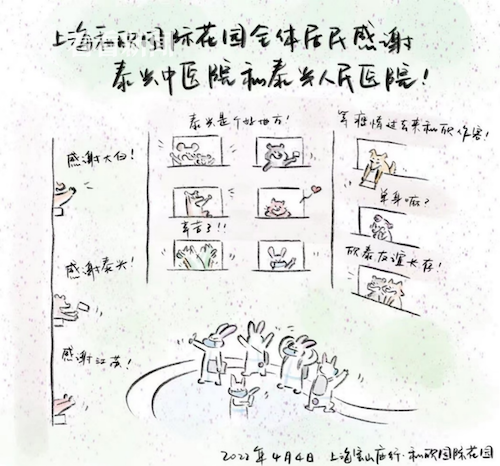 上海和欣国际花园全体居民感谢
泰兴中医院和泰兴人民医院！
泰兴是个好地方！
等疫情过去来和欣作客！
感谢大白！
单身嘛？
辛苦了!!
感谢泰兴！
欣泰友谊长存！
感谢江苏！
2022年4月4日 上海宝山庙行·和欣国际花园